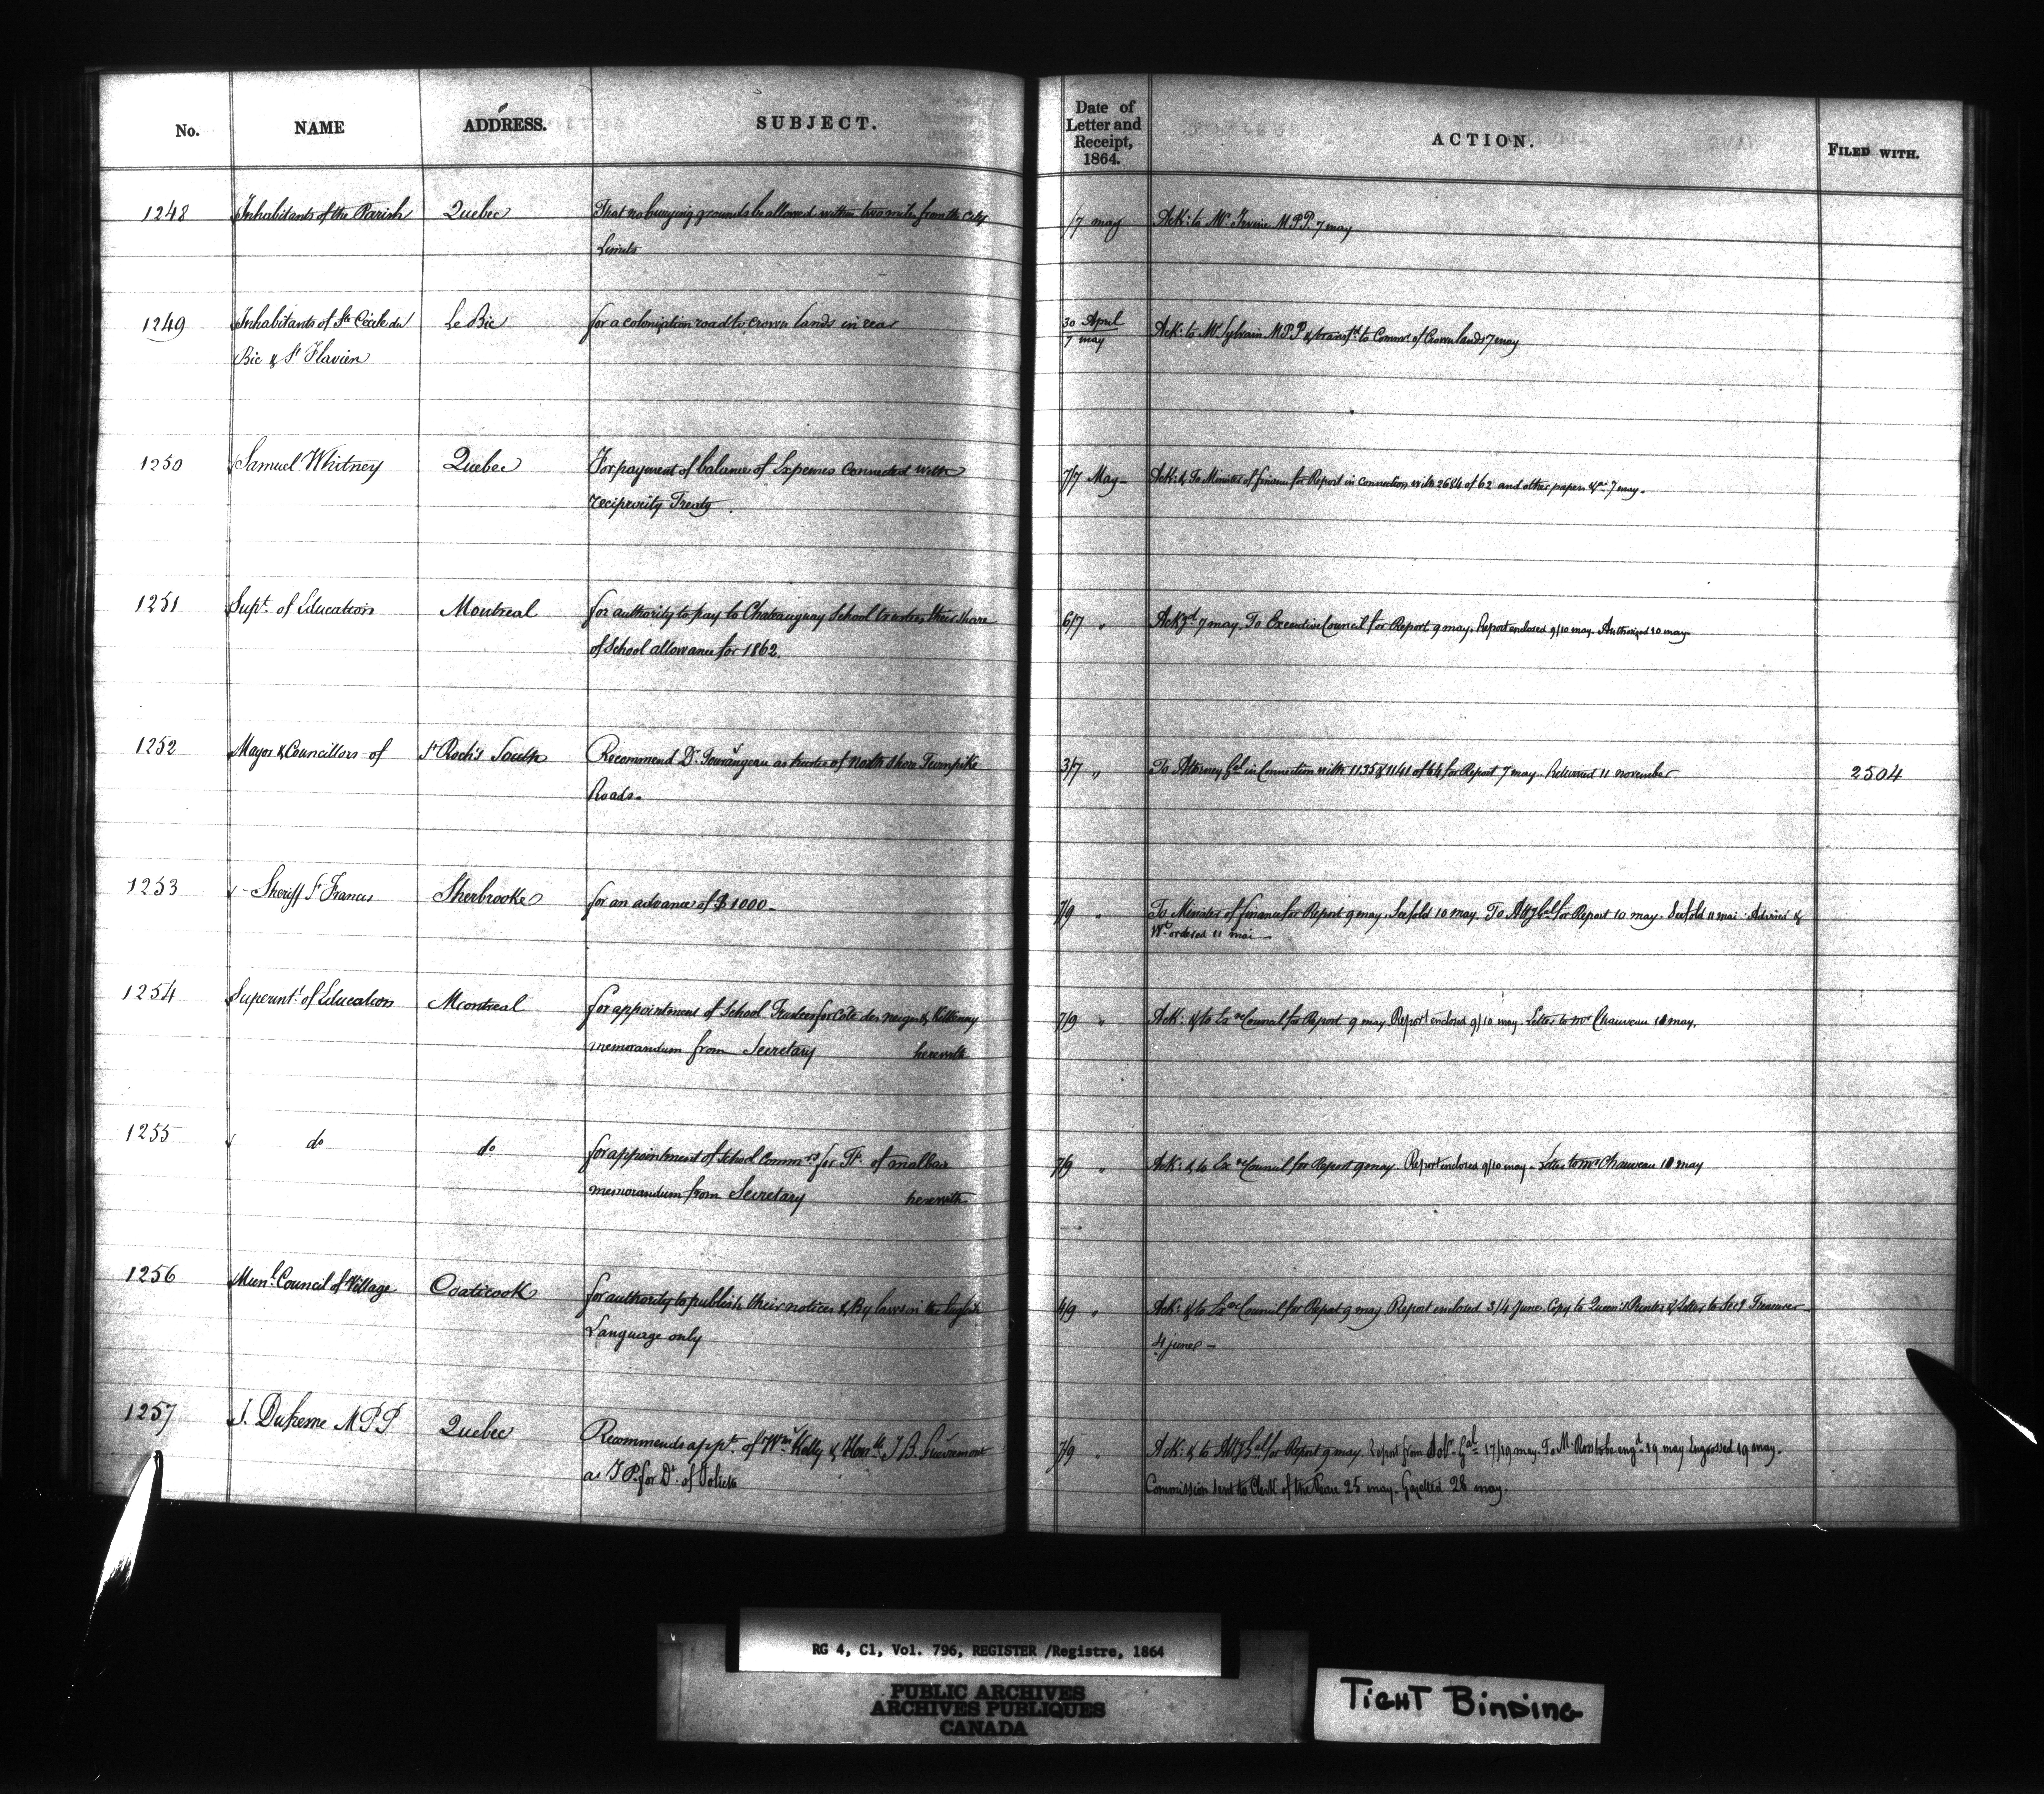 No. NAME ADDRESS. SUBJECT. Date of Letter and Receipt, 1864. ACTION. FILED WITH.
1248 Inhabitants of the Parish Quebec That no burying grounds be allowed within two miles from the City /7 may Ack: to Mr. Irvine M.P.P. 7 may
Limits
1249 Inhabitants of Ste Cécile du Le Bic for a colonization road to crown lands in rear 30 April Ack: to Mr Sylvain M.P.P & transfd. to Commr. of Crown lands 7 may
Bic & St Flavien 7 may
1250 Samuel Whitney Quebec For payment of balance of Expenses Connected with 7/7 May Ack: & To Minister of finance for Report in Connection with 2684 of 62 and other papers &c. 7 may.
reciprocity Treaty.
1251 Supt. of Education Montreal for authority to pay to Chateauguay School trustees their share 6/7 " Ackgd. 7 may. To Executive Council for Report 9 may. Report enclosed 9/10 may. Authorized 10 may
of School allowance for 1862.
1252 Mayor & Councillors of St Roch's South Recommend Dr. Tourangeau as trustee of north shore Turnpike 3/7 " To Attorney Gal in Connection with 1135 & 1141 of 64 for Report 7 may. Returned 11 november 2504
Roads.
1253 Sheriff St Francis Sherbrooke for an advance of $1000 7/9 " To Minister of finance for Report 9 may. See fold 10 may. To Atty Gal for Report 10 may. See fold 11 mai. Advised &
Wt. ordered 11 mai
1254 Superintt. of Education Montreal for appointment of School Trustees for Cote des neiges & Kilkenny 7/9 " Ack: & to Exve Council for Report 9 may Report enclosed 9/10 may. Letter to Mr Chauveau 10 may.
memorandum from Secretary herewith
1255 do do for appointment of School Commrs for TP. of malbaie 7/9 " Ack: & to Exve Council for Report 9 may. Report enclosed 9/10 may. Letter to Mr Chauveau 10 may
memorandum from Secretary herewith
1256 Munl. Council of Village Coaticook for authority to publish their notices & By laws in the English 4/9 " Ack: & to Exve Council for Report 9 may Report enclosed 3/4 June. Copy to Queen's Printer & Letter to Secy Treasurer
Language only 4 june
1257 J. Dufresne M.P.P Quebec Recommends appt. of Wm. Kelly & Honble. J. B. Guevremont 7/9 " Ack: & to Atty Gal for Report 9 may. Report from Solr. Gal 17/19 may. To M. Ross to be engd. 19 may Engrossed 19 may.
as J.P. for Dt. of Joliette Commission sent to Clerk of the Peace 25 may. Gazetted 28 may.
RG 4, C1, Vol. 796, REGISTER /Registre, 1864
PUBLIC ARCHIVES
ARCHIVES PUBLIQUES
CANADA
TIGHT BINDING